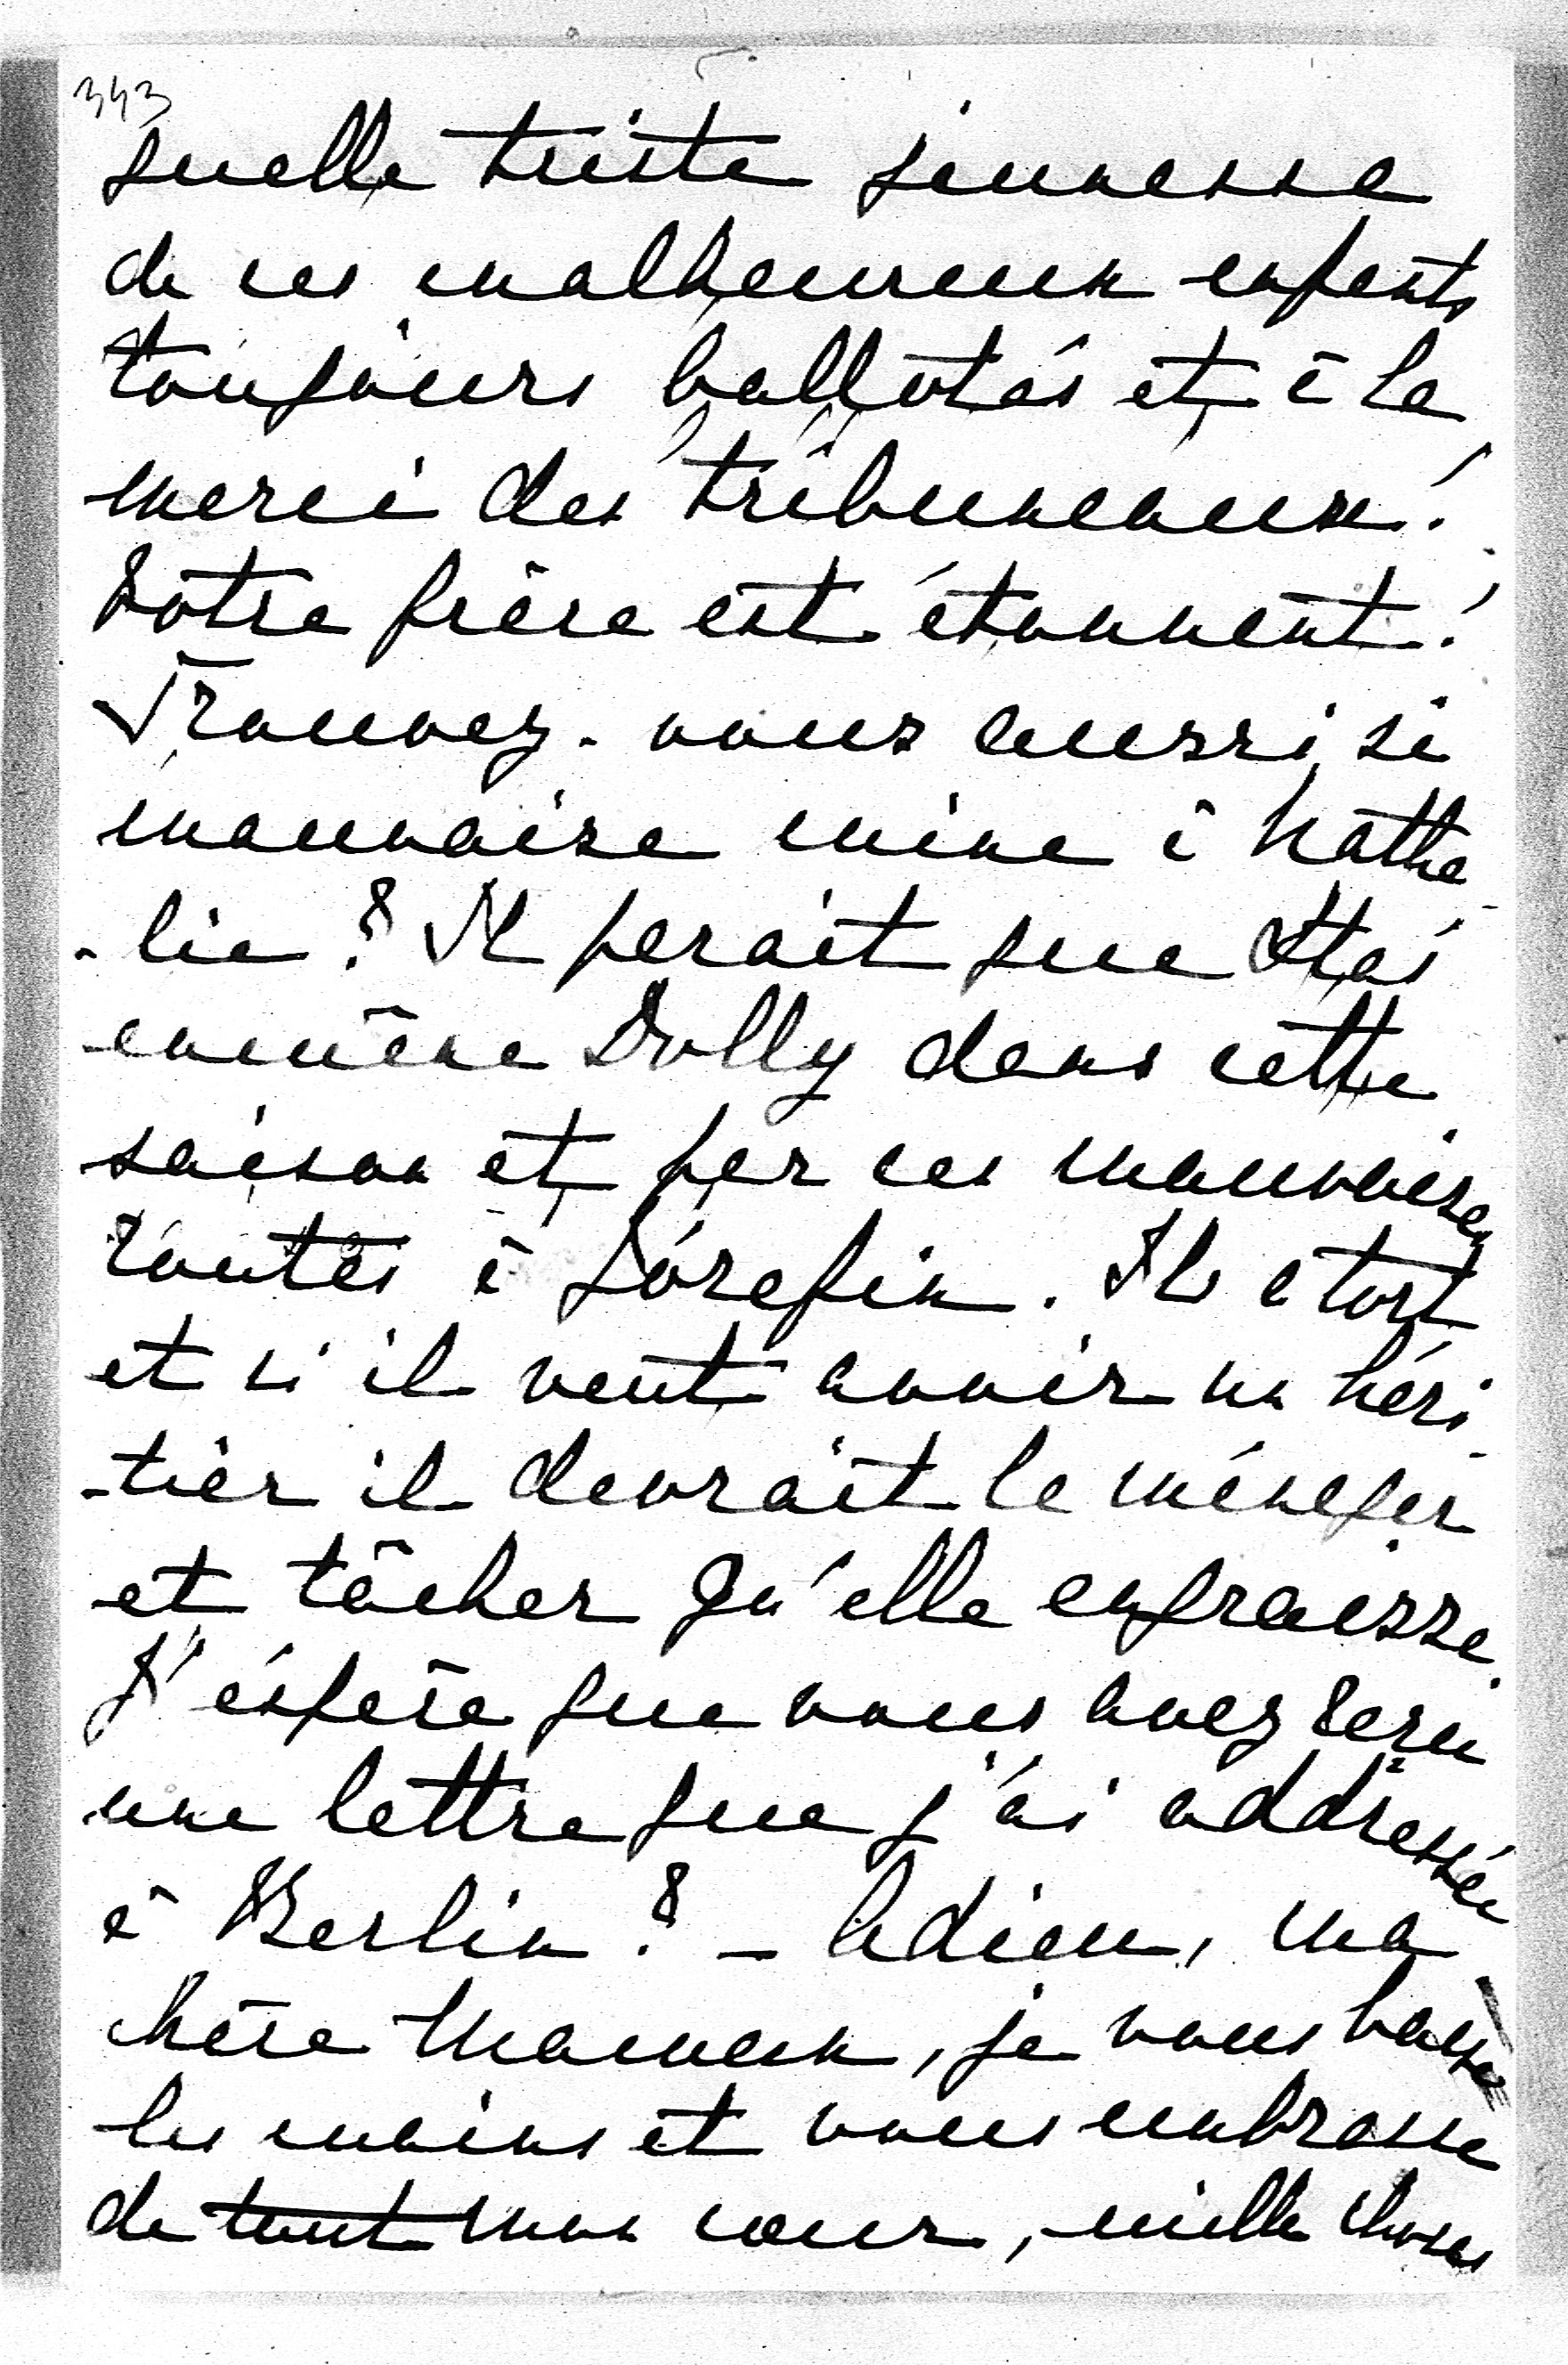 343
quelle triste jeunesse
de ces malheureux enfants
toujours ballotés et à la
merci des tribuneaux!
Votre frère est étonnant!
Trouvez-vous aussi si
mauvaise mine à Natha
-lie? Il parait que Stas
emmène Dolly dans cette
saison et par ces mauvaises
routes à Dórefin. Il a tort
et si il veut avoir un héri-
-tier il devrait la ménager
et tâcher qu'elle engraisse.
J'éspère que vous avez reçu
une lettre que j'ai addressée
à Berlin? - Adieu, ma
chère Maman, je vous baise
les mains et vous embrasse
de tout mon cœur, mille choses